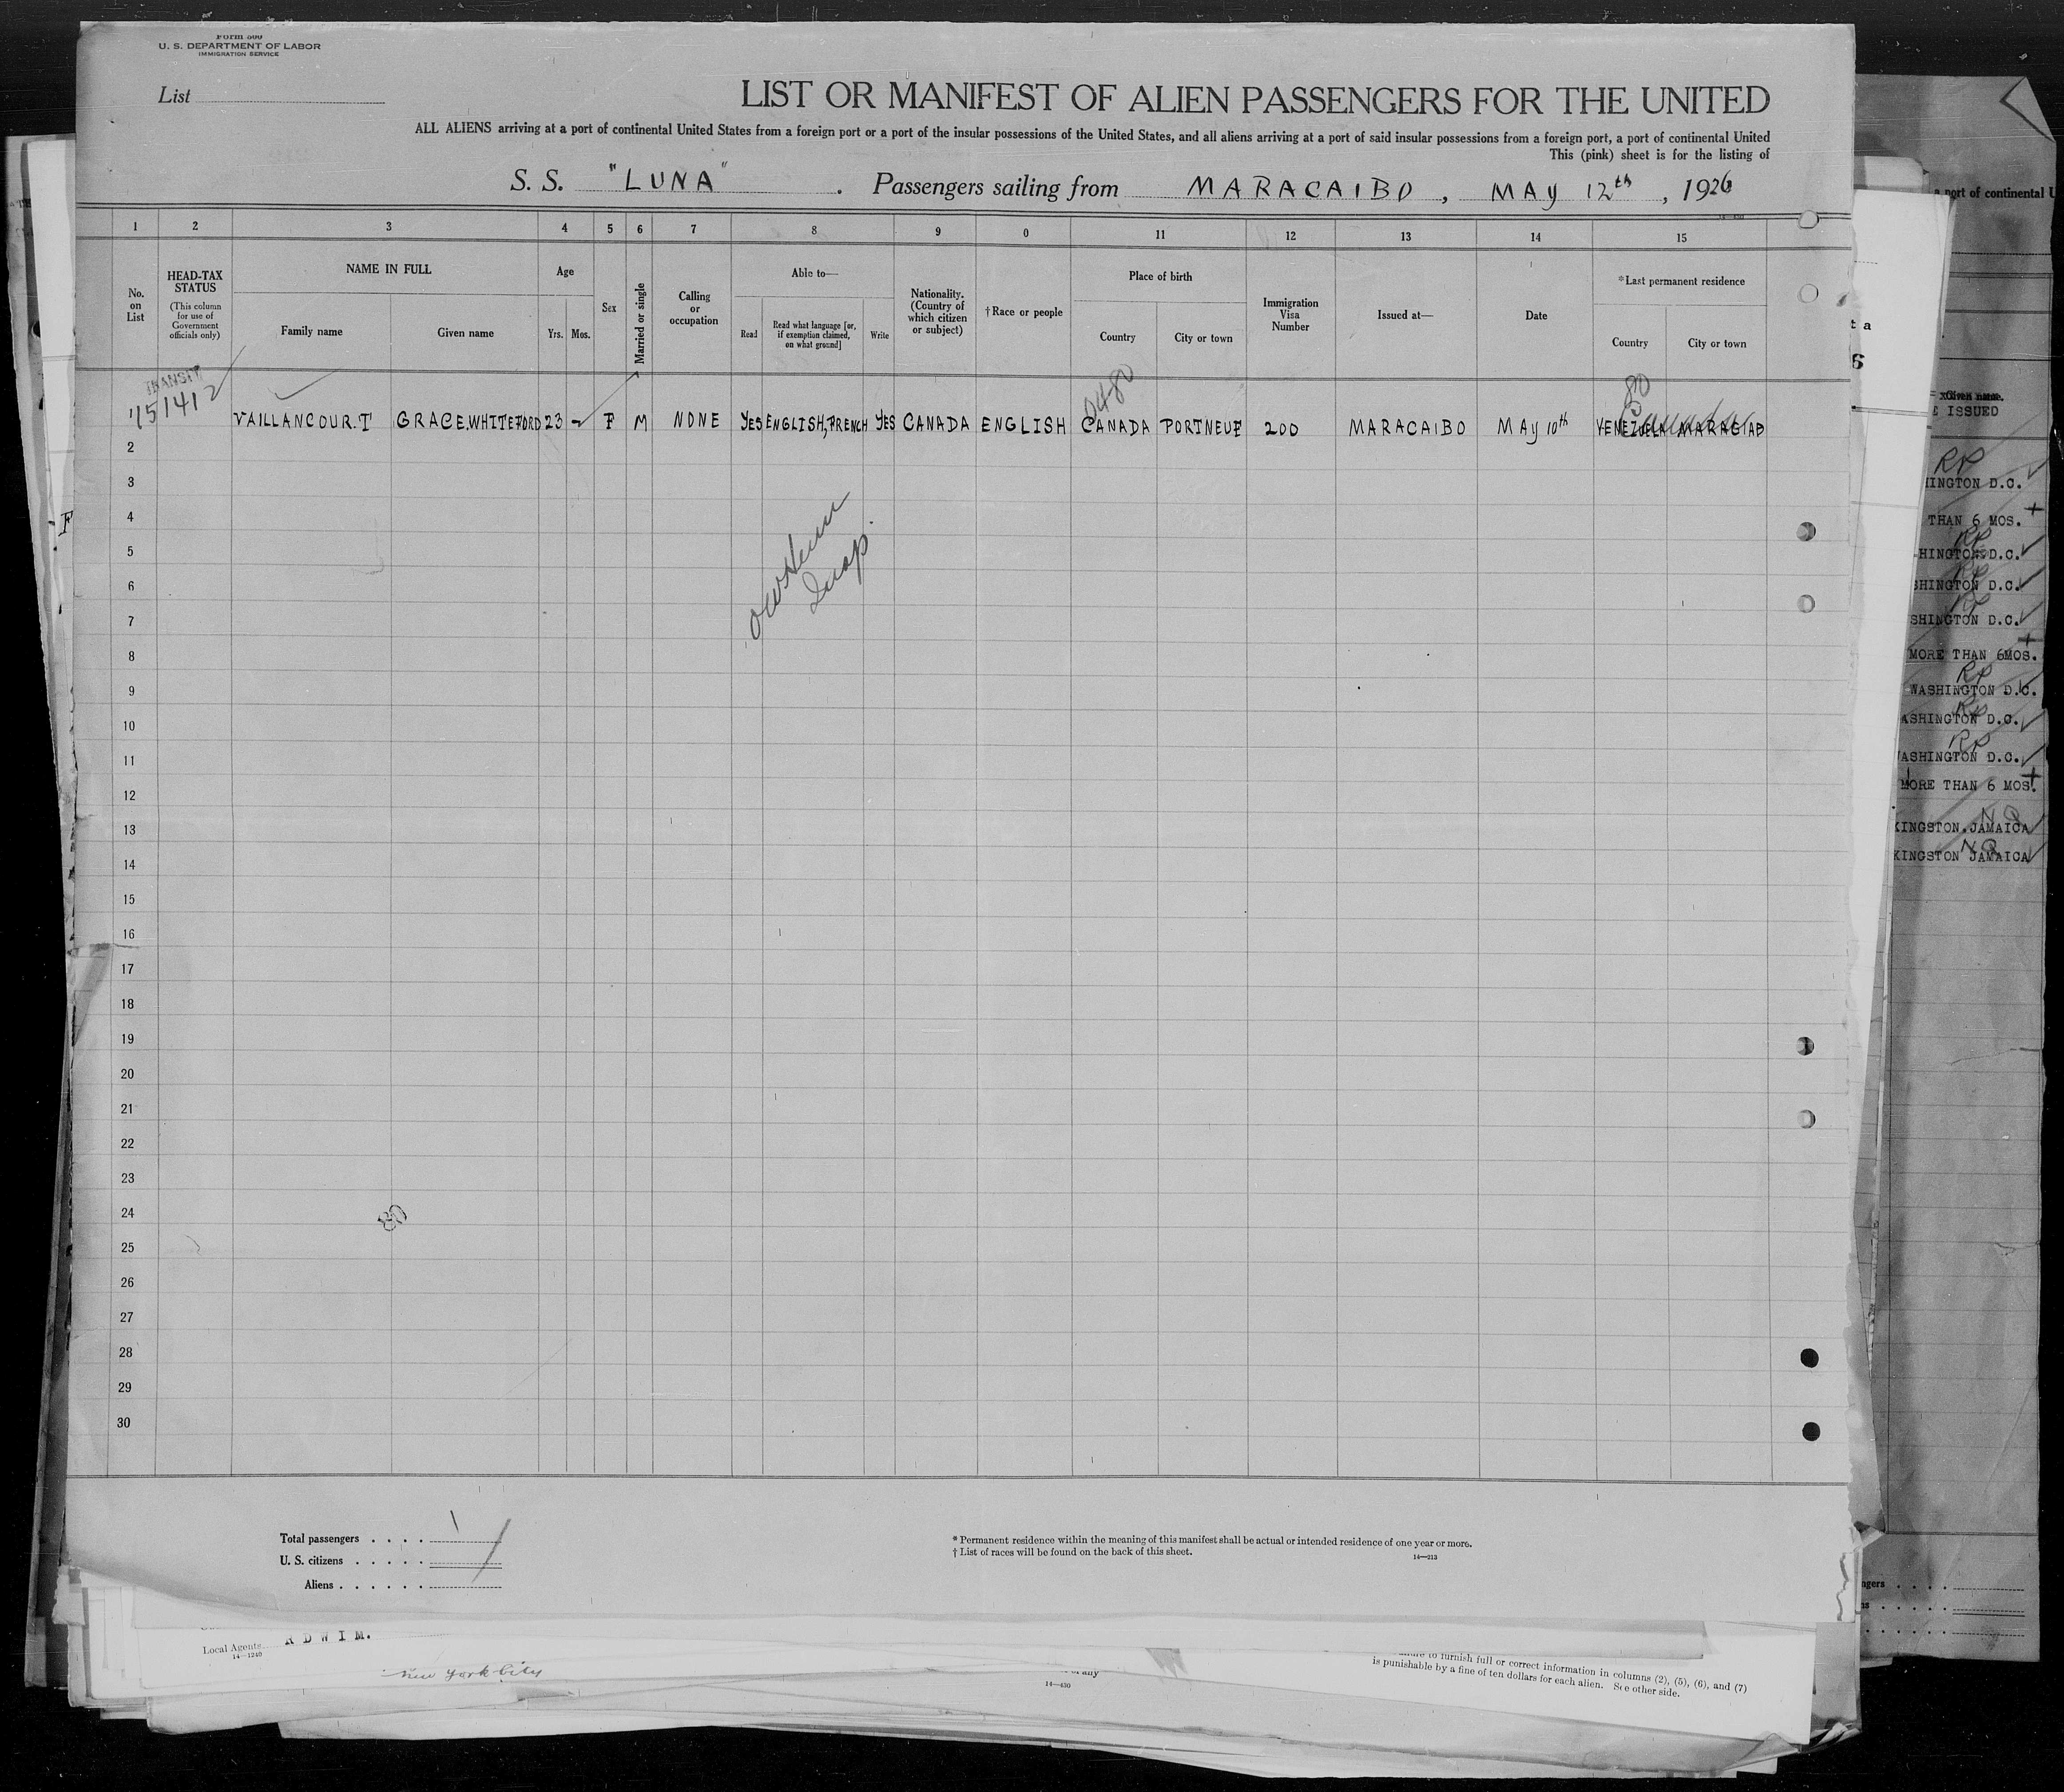 Form 500
U. S. DEPARTMENT OF LABOR
IMMIGRATION SERVICE
List
LIST OR MANIFEST OF ALIEN PASSENGERS FOR THE UNITED
ALL ALIENS arriving at a port of continental United States from a foreign port or a port of the insular possessions of the United States, and all aliens arriving at a port of said insular possessions from a foreign port, a port of continental United
This (pink) sheet is for the listing of
S. S. "LUNA" . Passengers sailing from MARACAIBO, MAY 12th, 1926
1 2 3 4 5 6 7 8 9 0 11 12 13 14 15
No. on List
HEAD-TAX STATUS
(This column for use of Government officials only)
NAME IN FULL
Family name
Given name
Age
Yrs. Mos.
Sex
Married or single
Calling or occupation
Able to—
Read
Read what language [or, if exemption claimed, on what ground]
Write
Nationality. (Country of which citizen or subject)
†Race or people
Place of birth
Country
City or town
Immigration Visa Number
Issued at—
Date
*Last permanent residence
Country
City or town
TRANSIT
0480
80
Canada
VAILLANCOUR.T GRACE.WHITEFORD 23 - F M NONE YES ENGLISH, FRENCH YES CANADA ENGLISH CANADA PORTNEUF 200 MARACAIBO MAY 10th VENEZUELA
2
3
4
5
6
7
8
9
10
11
12
13
14
15
16
17
18
19
20
21
22
23
24
25
26
27
28
29
30
80
Total passengers . . . . 1
U. S. citizens . . . . .
Aliens . . . . . .
* Permanent residence within the meaning of this manifest shall be actual or intended residence of one year or more.
† List of races will be found on the back of this sheet.
14—213
Local Agents
14—1240
New York City
14—430
to furnish full or correct information in columns (2), (5), (6), and (7)
is punishable by a fine of ten dollars for each alien. See other side.
a port of continental U
E ISSUED
RP
INGTON D.C.
THAN 6 MOS. +
RP
HINGTON D.C.
RP
SHINGTON D.C.
RP
SHINGTON D.C.
MORE THAN 6MOS. +
RP
WASHINGTON D.C.
RP
ASHINGTON D.C.
RP
WASHINGTON D.C.
MORE THAN 6 MOS. +
NQ
KINGSTON.JAMAICA
NQ
KINGSTON JAMAICA